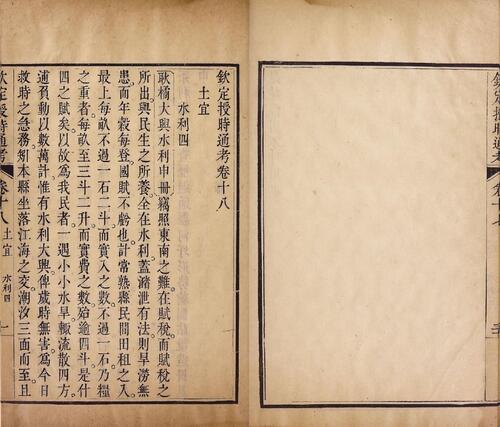 欽定授時通考卷十八
土宜
水利四
耿橘大興水利申冊竊照東南之難在賦稅而賦稅之
所出與民生之所養全在水利蓋瀦泄有法則旱澇無
患而年穀每登國賦不虧也計常熟縣民間田租之入
最上每畝不過一石二斗而實入之數不過一石乃糧
之重者每畝至三斗二升而實費之數殆逾四斗是什
四之賦矣以故為我民者一遇小小水旱輒流散四方
逋負動以數萬計惟有水利大興俾歲時無害為今日
救時之急務矧本縣坐落江海之交潮汐三面而至且
欽定授時通考
卷十八
土宜
水利四
一